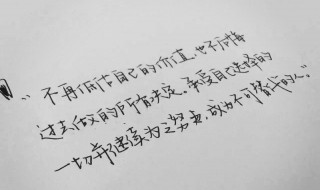 “不再低估自己的价值,也不后悔
过去做的所有决定。承受自己选择的
一切并继续为之努力,成为不可替代的人。”